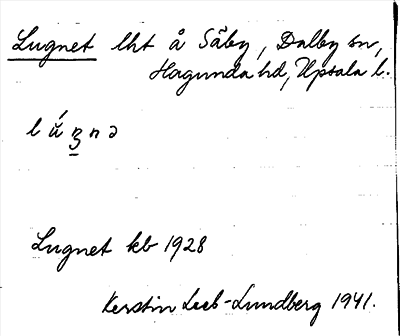 Lugnet lht å Säby, Dalby sn,
Hagunda hd, Upsala l.
Lugnet kb 1928
Kerstin Loeb-Lundberg 1941.